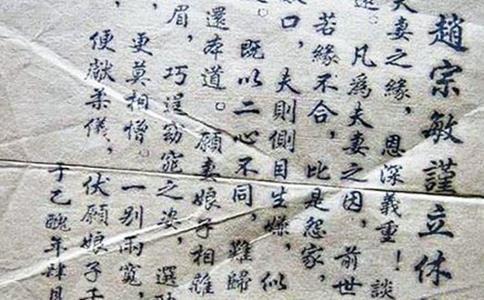 趙宗敏謹立休
夫妻之緣,恩深義重!談
遠。凡為夫妻之因,前世
若緣不合,比是怨家,
口,夫則側目生嫌,似
。既以二心不同,難歸
還本道。願妻娘子相離
眉,巧逞窈窕之姿,選
,更莫相憎。一別兩寬,
,便獻柔儀,伏願娘子千
于乙醜年肆月